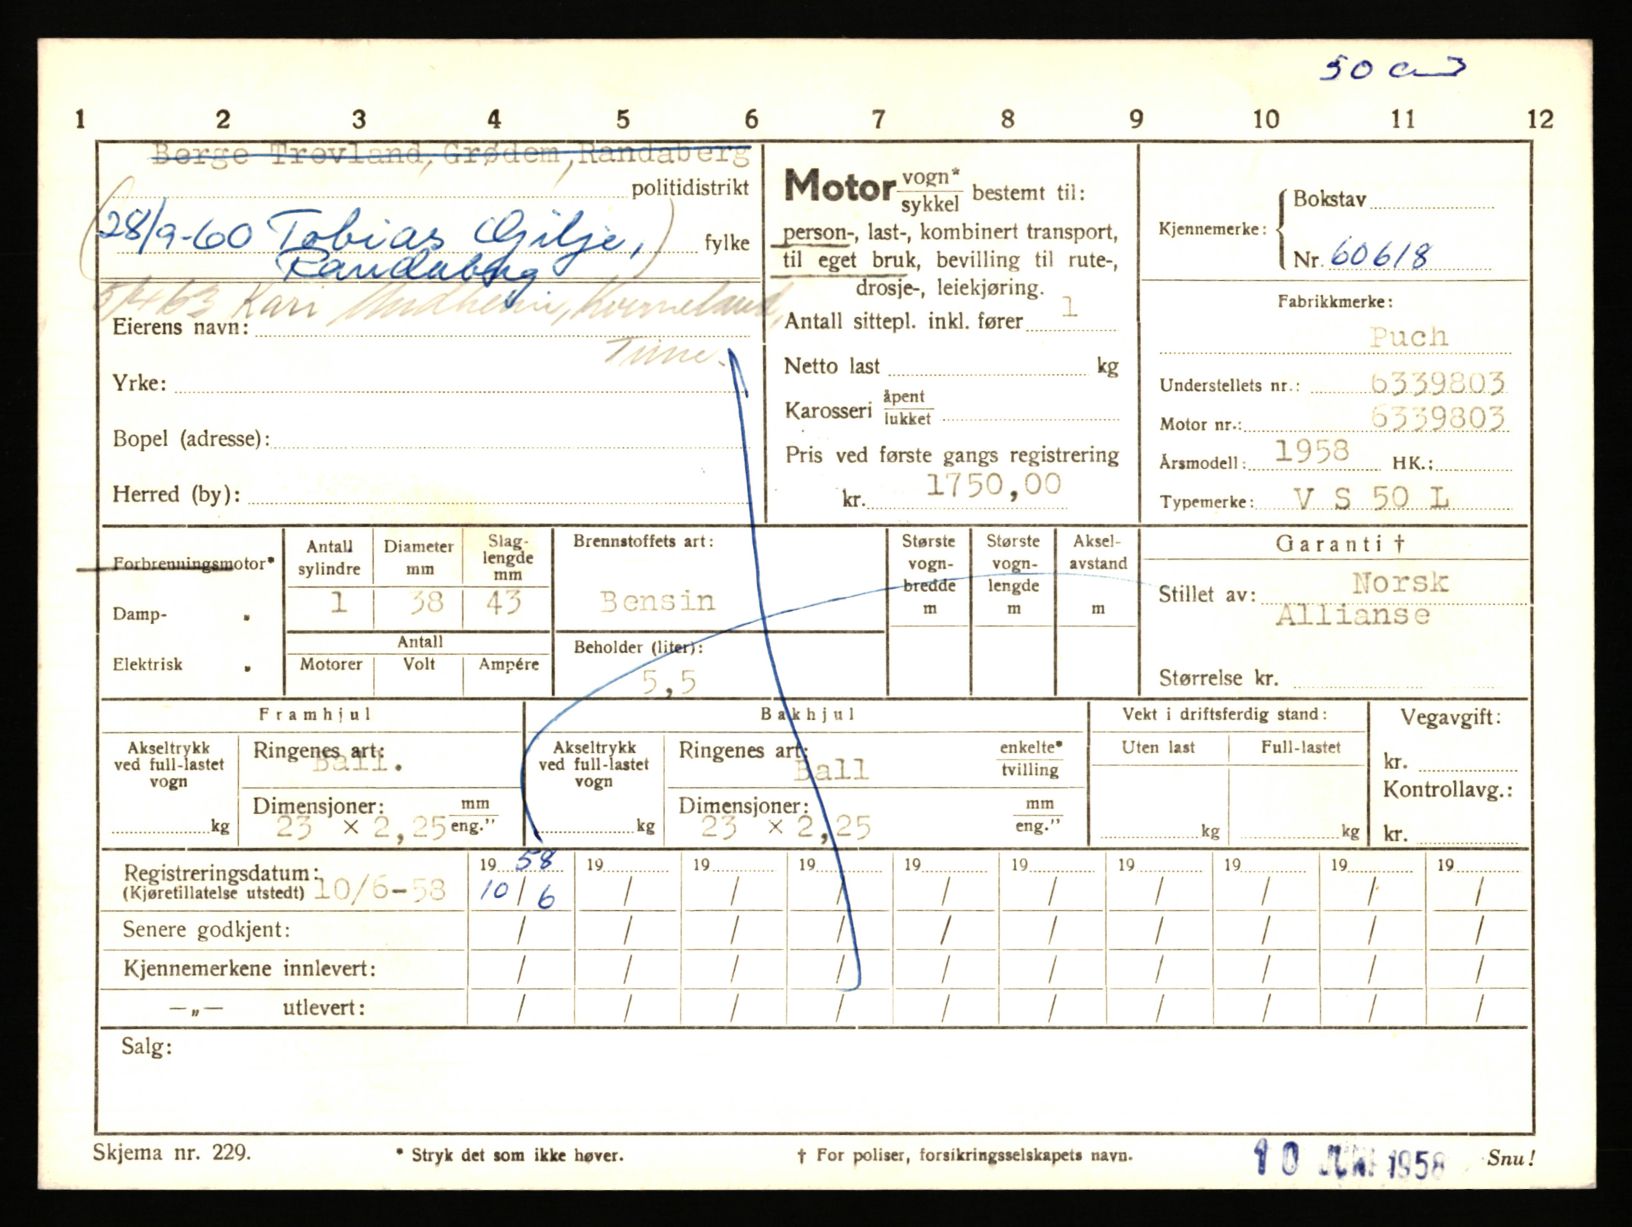 50 cm3
1 2 3 4 5 6 7 8 9 10 11 12
Børge Trevland, Grødem, Randaberg
politidistrikt
(28/9-60 Tobias Gilje,)
fylke
Randaberg
Kari Kverneland,
Eierens navn:
Time.
Yrke:
Bopel (adresse):
Herred (by):
Motor vogn* sykkel bestemt til:
person-, last-, kombinert transport,
til eget bruk, bevilling til rute-,
drosje-, leiekjøring.
Antall sittepl. inkl. fører 1
Netto last kg
Karosseri åpent lukket
Pris ved første gangs registrering
kr. 1750,00
Kjennemerke:
Bokstav
Nr. 60618
Fabrikkmerke:
Puch
Understellets nr.: 6339803
Motor nr.: 6339803
Årsmodell: 1958 HK.:
Typemerke: V S 50 L
Forbrenningsmotor*
Damp- "
Elektrisk "
Antall sylindre
1
Diameter mm
38
Slag-lengde mm
43
Antall
Motorer Volt Ampére
Brennstoffets art:
Bensin
Beholder (liter):
5,5
Største vogn-bredde m
Største vogn-lengde m
Aksel-avstand m
Garanti †
Stillet av: Norsk
Allianse
Størrelse kr.
Framhjul
Akseltrykk ved full-lastet vogn
kg
Ringenes art:
Ball.
Dimensjoner: mm eng."
23 x 2,25
Bakhjul
Akseltrykk ved full-lastet vogn
kg
Ringenes art: enkelte* tvilling
Ball
Dimensjoner: mm eng."
23 x 2,25
Vekt i driftsferdig stand:
Uten last Full-lastet
kg kg
Vegavgift:
kr.
Kontrollavg.:
kr.
Registreringsdatum: 19 58 19 19 19 19 19 19 19 19 19
(Kjøretillatelse utstedt) 10/6-58 10/6 / / / / / / / / /
Senere godkjent: / / / / / / / / / /
Kjennemerkene innlevert: / / / / / / / / / /
—„— utlevert: / / / / / / / / / /
Salg:
Skjema nr. 229. * Stryk det som ikke høver. † For poliser, forsikringsselskapets navn. 10 JUNI 1958 Snu!